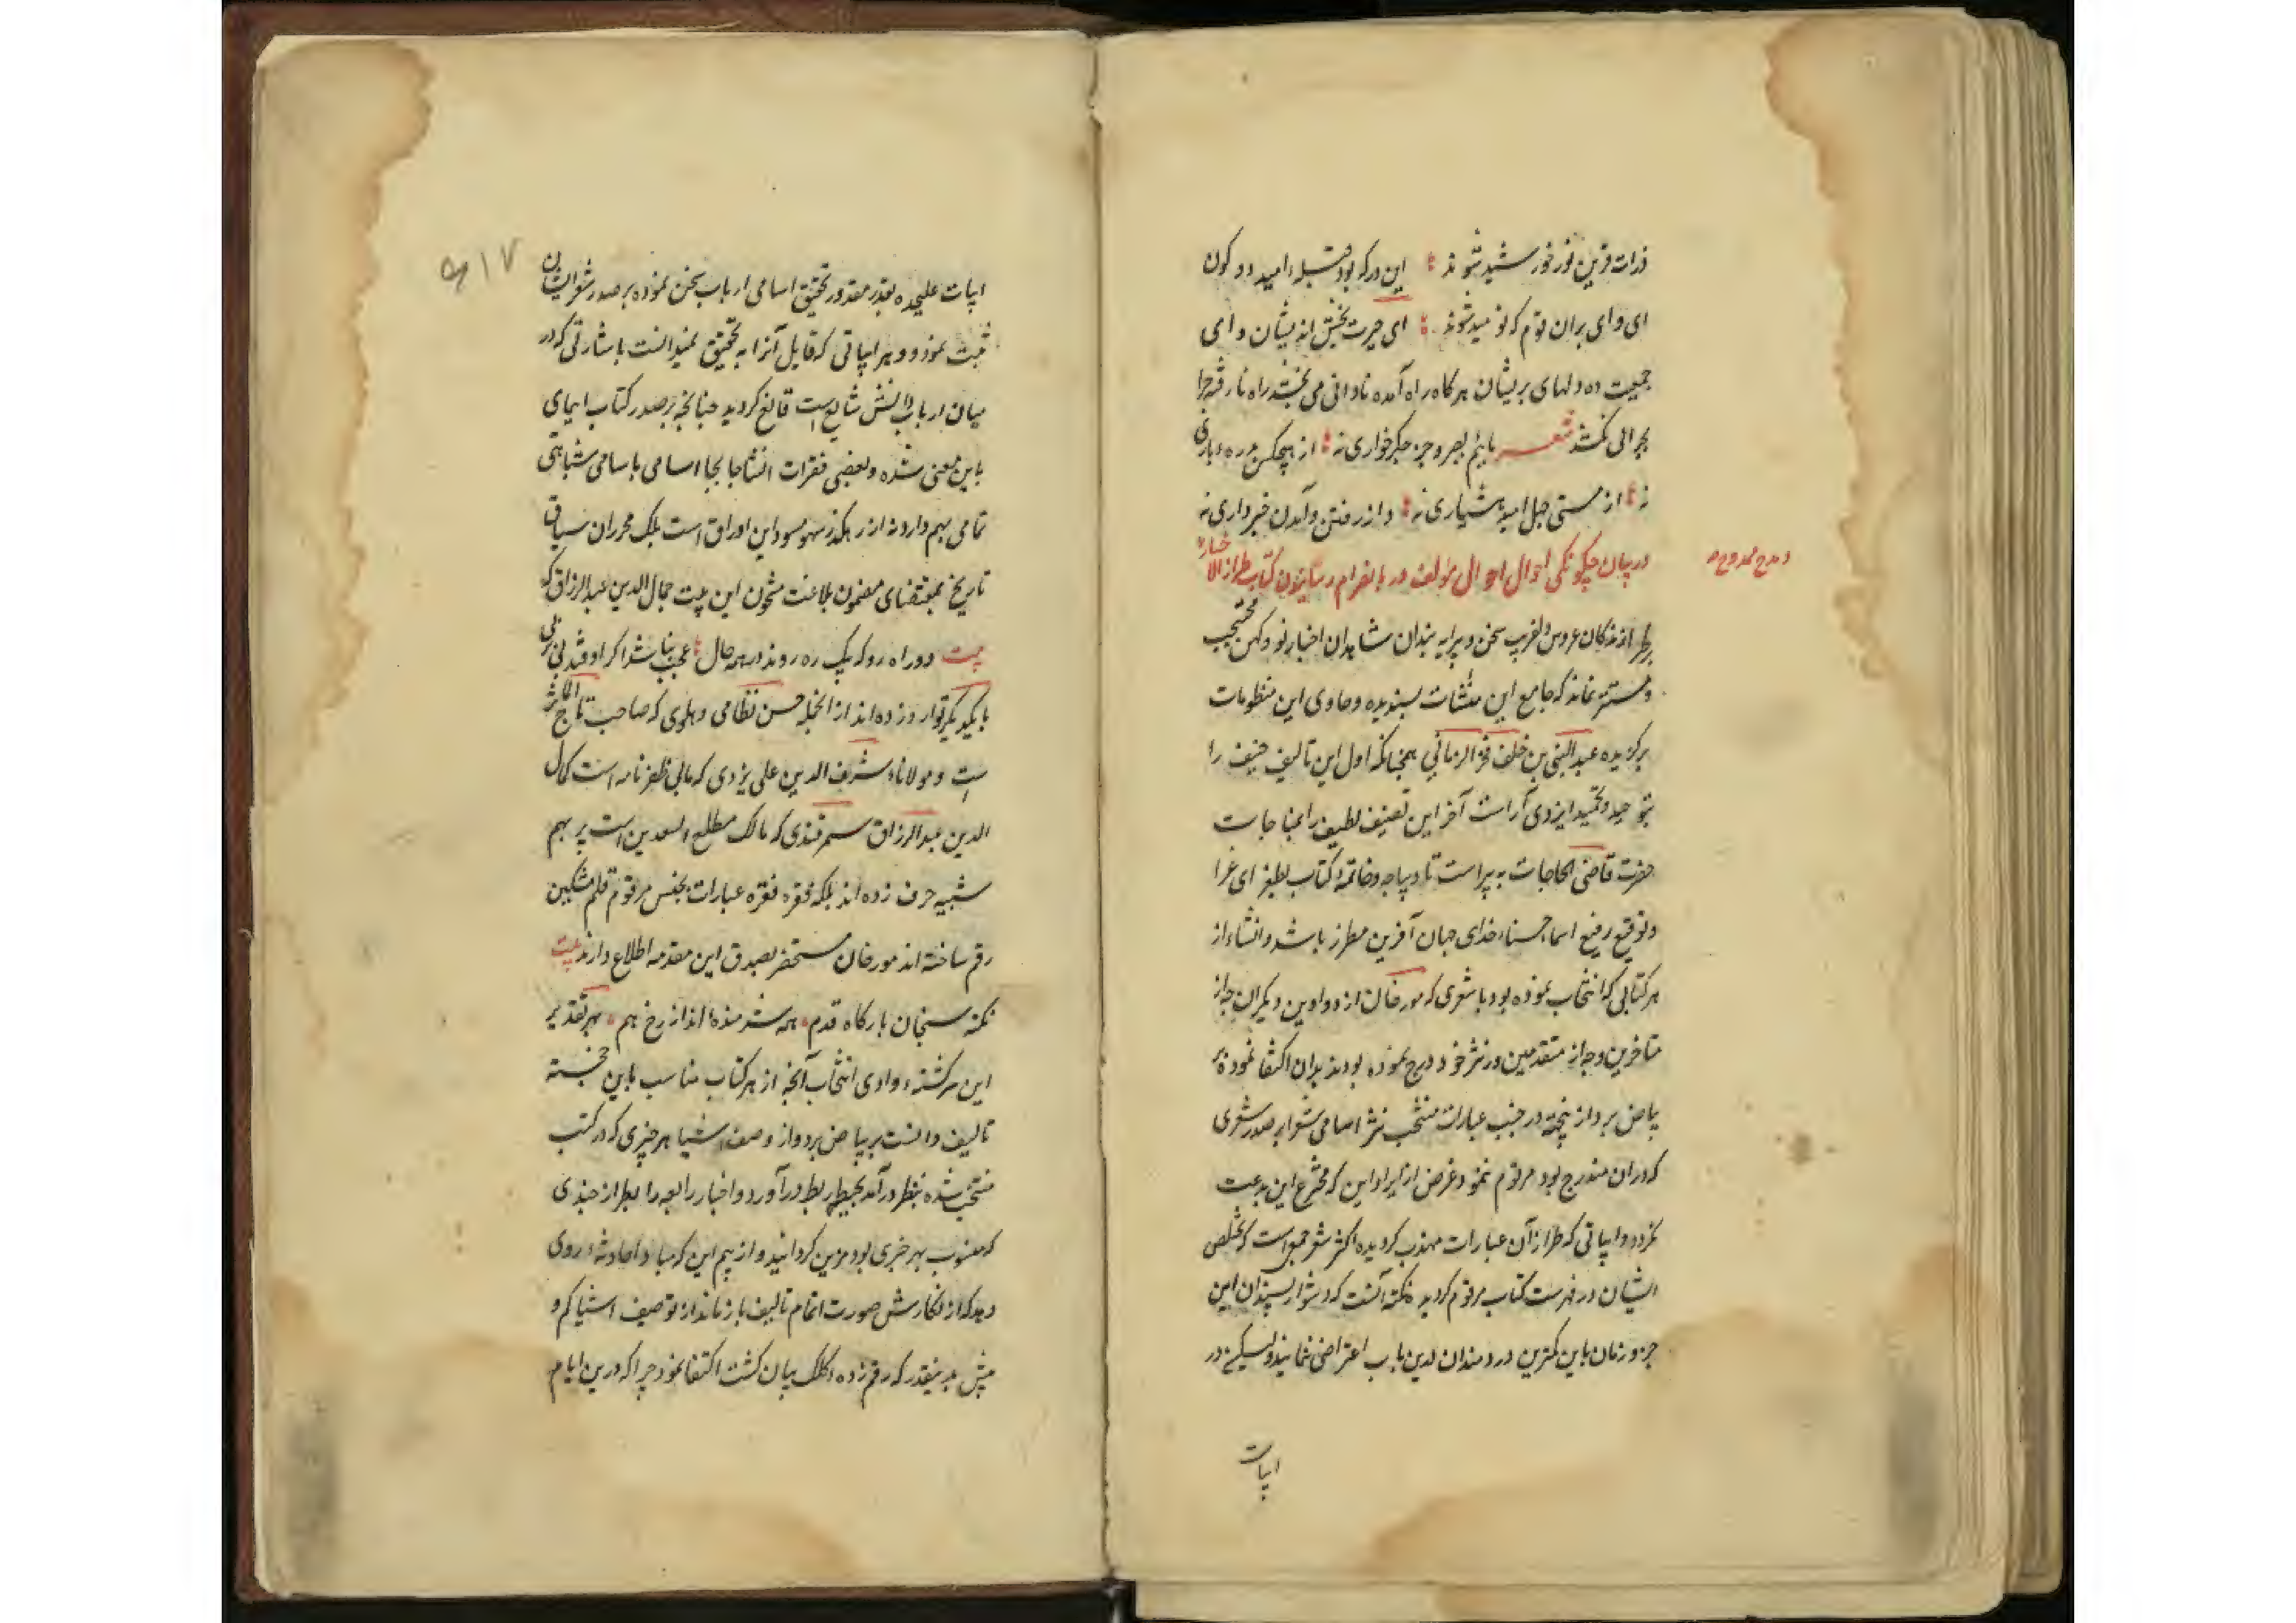 ذرات قرین نور خورشید شوند این در که بود قبله امید دو کون
ای وای بران قوم که نومید شوند ای حیرت بخش اندیشان و ای
جمعیت ده دلهای پریشان هر کاه راه آمده نادانی می بخشد راه نارفته را
بحرالی نکشد شعر یا بجز جکر خواری نه از هیچکس
نه از مستی جهل امید هشیاری نه و از رفتن و آمدن خبر داری نه
در بیان چکونکی احوال مولف و بانصرام رسانیدن کتاب طراز الاخبار
و مدح ممدوح
بر طرازندکان عروس دلفریب سخن و پیرایه بندان شاهدان اخبار نو و کهن محتجب
و مستتر نماند که جامع این منشات پسندیده و حاوی این منظومات
برکزیده عبدالنبی بن خلف فخرالزمانی همچنانکه اول این تالیف ضعیف را
بتوحید و تحمید ایزدی آراست آخر این تصنیف لطیف را بمناجات
حضرت قاضی الحاجات پیراست تا دیباجه و خاتمه کتاب بطغرای غرا
و توقیع رفیع اسماء حسناء خدای جهان آفرین مطرز باشد و انشاء از
هر کتابی که انتخاب نموده بود با شعری که مورخان از دواوین دیکران چه از
متاخرین و چه از متقدمین در نثر خود درج نموده بودند بدان اکتفا نموده بر
بیاض برد از پنجهة در جنب عبارات منتخب نثر اسامی شعرا بر صدر شعری
که دران مندرج بود مرقوم ننمود و غرض از ایراد این که مخترع این بدعت
نکردد و ابیاتی که طراز آن عبارات مهذب کردیده اکثر شعر جمعی است که تخلص
ایشان در فهرست کتاب مرقوم کردید نکته آنست که دشوار پسندان این
جزو زمان باین کمترین دردمندان درین باب اعتراض ننمایند لیکن در
ابیات
۶۱۷
ابیات علیحده بقدر مقدور تحقیق اسامی ارباب سخن نموده بر صدر شعر ایشان
ثبت نمود و هر ابیاتی که قایل آنرا به تحقیق نمیدانست باشارتی که در
میان ارباب دانش شایع است قانع کردید چنانچه بر صدر کتاب ایمای
باین معنی شده و بعضی فقرات انشا جا بجا اسامی باسامی شباهتی
تمامی بهم دارد نه از رهکذر سهو مسود این اوراق است بلکه محرران سیاق
تاریخ بمقتضای مضمون بلاغت مشحون این بیت جمال الدین عبدالرزاق که
بیت دو راه رو که بیک ره روند در همه حال عجب نباشد اکر اوفتد پی بر پی
بایکدیکر توارد زده اند از انجمله حسن نظامی دهلوی که صاحب تاج المآثر
است و مولانا شرف الدین علی یزدی که بانی ظفرنامه است کمال
الدین عبدالرزاق سمرقندی که مالک مطلع السعدین است پر بهم
شبیه حرف زده اند بلکه فقره فقره عبارات بجنس مرقوم قلم مشکین
رقم ساخته اند مورخان مستحضر بصدق این مقدمه اطلاع دارند بیت
نکته سنجان بارکاه قدم همه شرمنده اند از رخ هم بهر تقدیر
این سرکشته وادی انتخاب آنچه از هر کتاب مناسب باین خجسته
تالیف دانست بر بیاض برد و از وصف اشیا هر چیزی که در کتب
منتخب شده بنظر در آمد بحیطه ربط در آورد و اخبار رابعه را بطراز چندی
که منسوب بهر خبری بود مزین کردانید و از بیم این که مبادا حادثه روی
دهد که از نکارش صورت اتمام تالیف باز ماند از توصیف اشیا کم و
بیش بهمینقدر که رقم زده کلک بیان کشت اکتفا نمود چرا که درین ایام